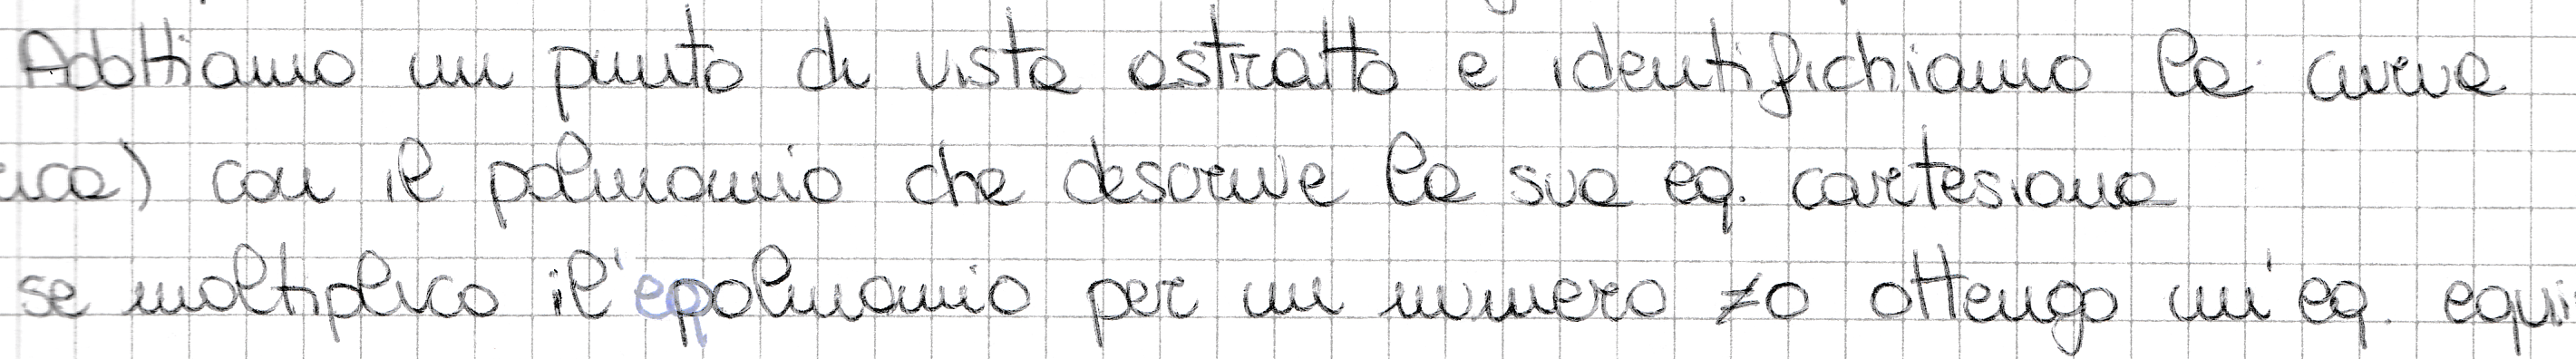 Adottiamo un punto di vista astratto e identifichiamo la curva
ica) con il polinomio che descrive la sua eq. cartesiana
se moltiplico il polinomio per un numero ≠0 ottengo un'eq. equi